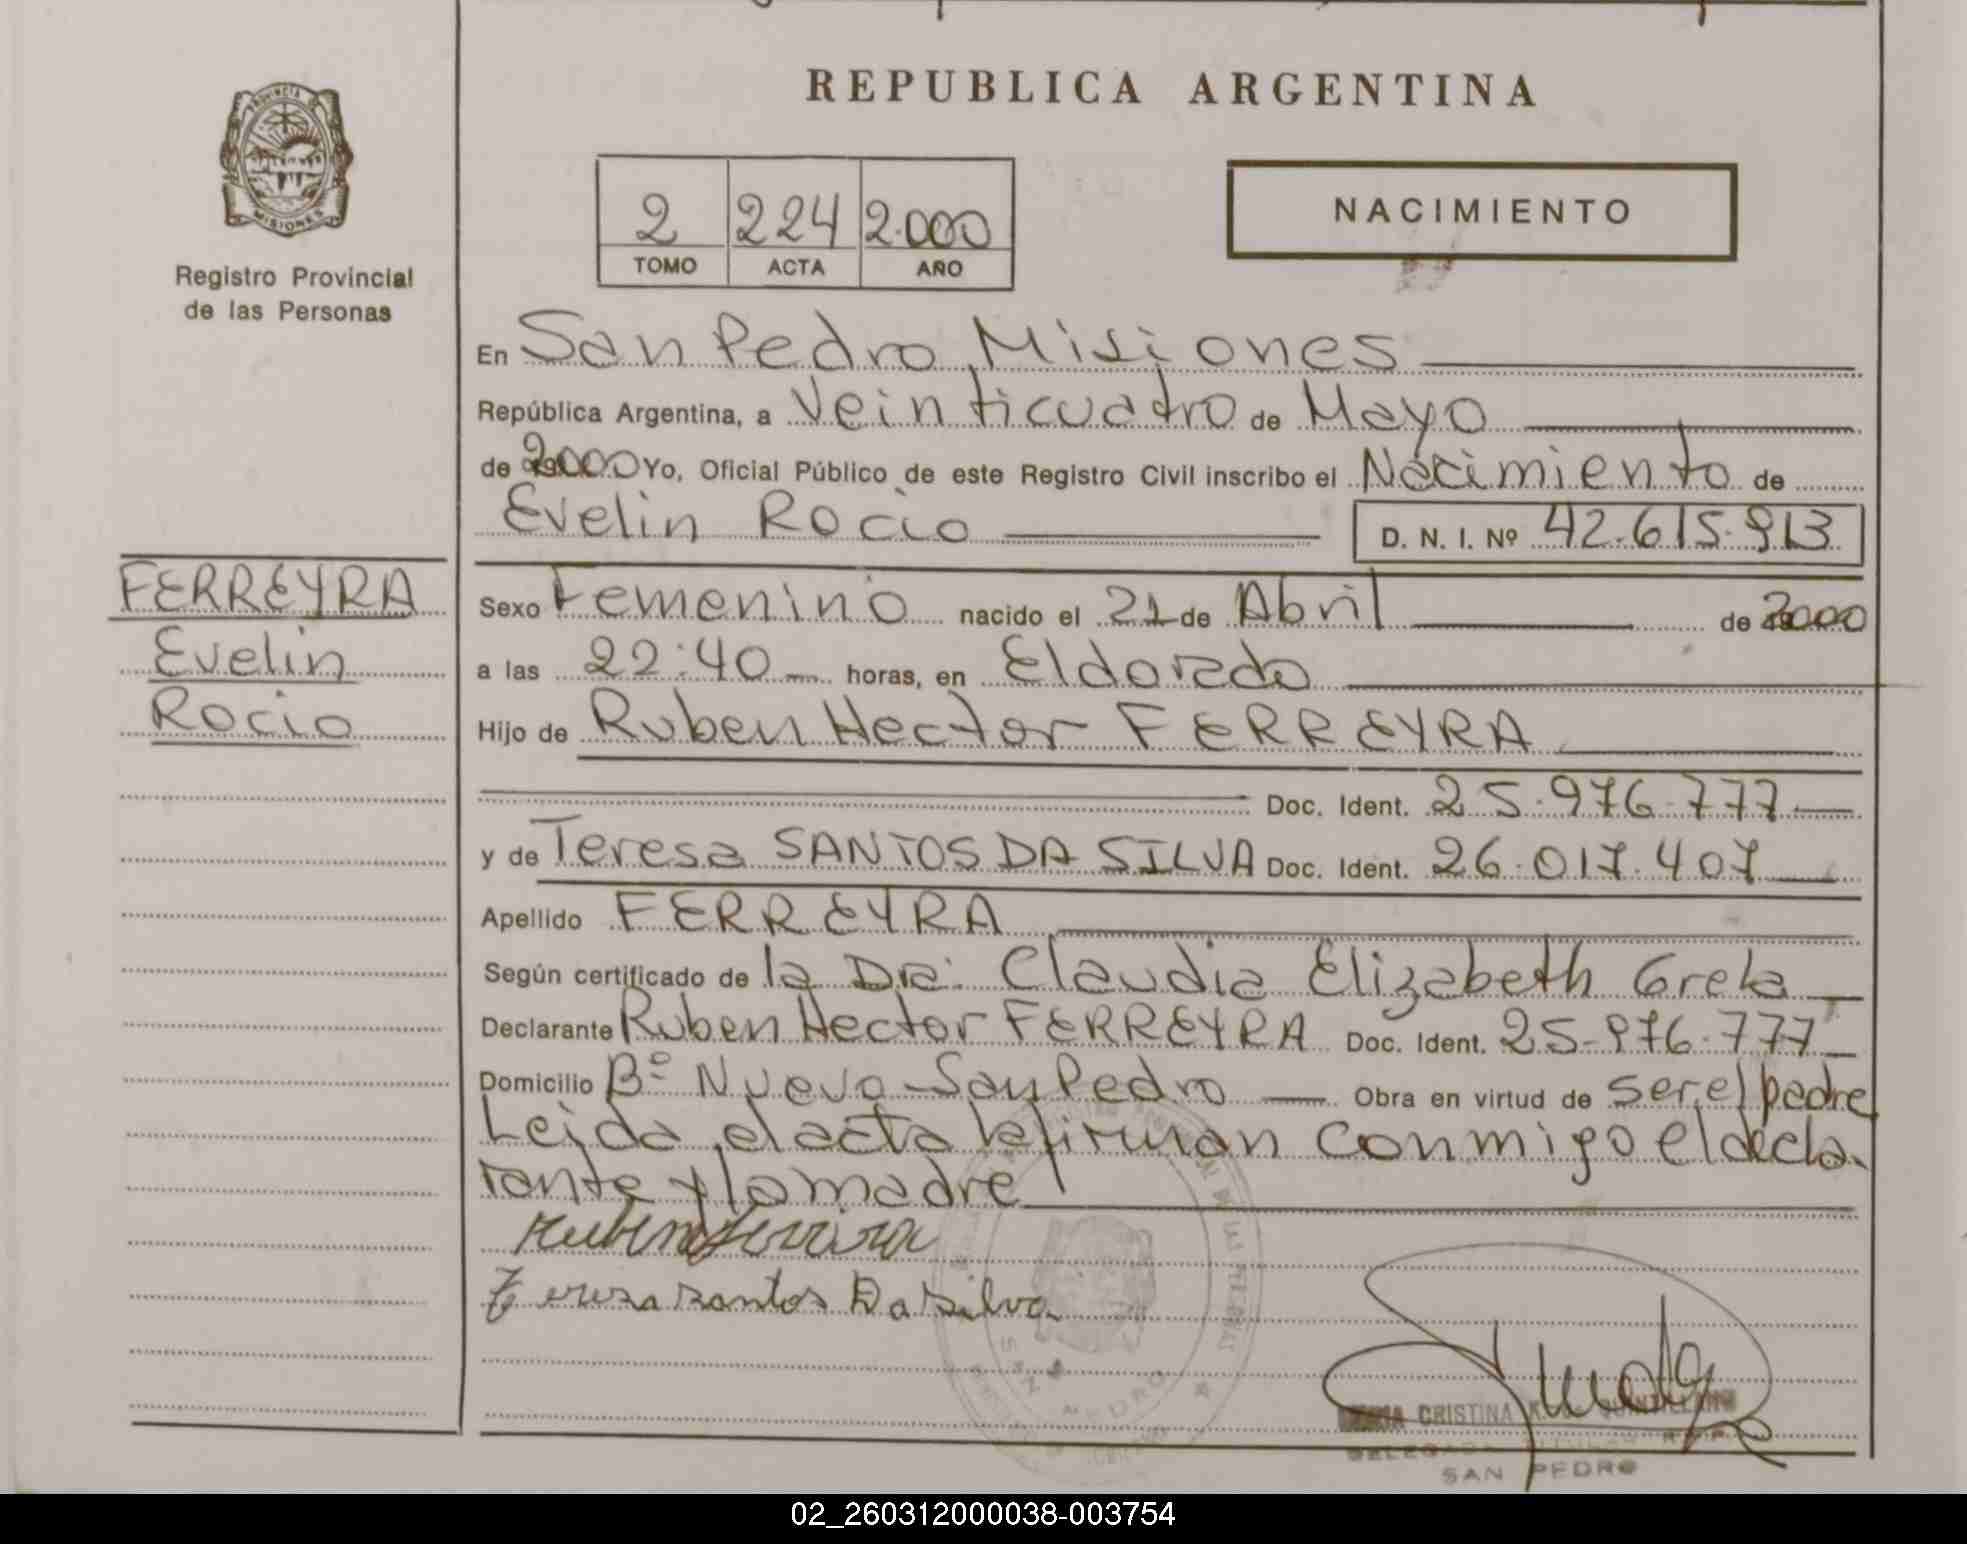 REPUBLICA ARGENTINA
PROVINCIA DE
MISIONES
Registro Provincial
de las Personas
2 224 2.000
TOMO ACTA AÑO
NACIMIENTO
En San Pedro Misiones
República Argentina, a Veinticuatro de Mayo
de 2000 Yo, Oficial Público de este Registro Civil inscribo el Nacimiento de
Evelin Rocio D. N. I. Nº 42.615.913
FERREYRA
Evelin
Rocio
Sexo Femenino nacido el 21 de Abril de 2000
a las 22:40 horas, en Eldorado
Hijo de Ruben Hector FERREYRA
Doc. Ident. 25.976.777
y de Teresa SANTOS DA SILVA Doc. Ident. 26.017.407
Apellido FERREYRA
Según certificado de la Dra: Claudia Elizabeth Grela
Declarante Ruben Hector FERREYRA Doc. Ident. 25.976.777
Domicilio Bº Nuevo San Pedro Obra en virtud de ser el padre
Leida el acta la firman conmigo el decla-
rante y la madre
Teresa santos Da Silva
CRISTINA QUINTILLANO
DELEGADA TITULAR R.P.P.
SAN PEDRO
02_260312000038-003754